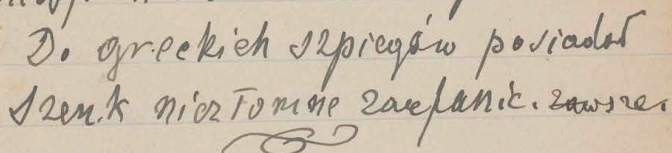 Do greckich szpiegów posiadał
Szenk niezłomne zaufanie. zawsze.